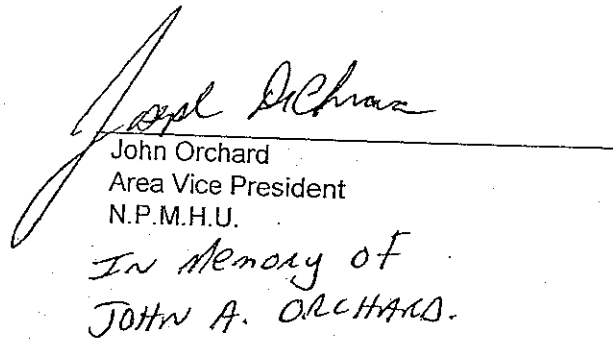 Joseph
John Orchard
Area Vice President
N.P.M.H.U.
In Memory of
JOHN A. ORCHARD.